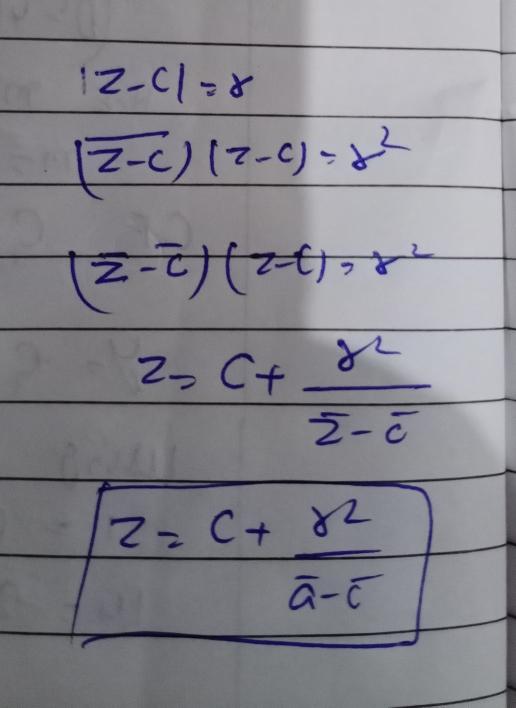 |z-c| = r
(\overline{z-c})(z-c) = r^2
(\bar{z}-\bar{c})(z-c) = r^2
z = c + \frac{r^2}{\bar{z}-\bar{c}}
z = c + \frac{r^2}{\bar{a}-\bar{c}}